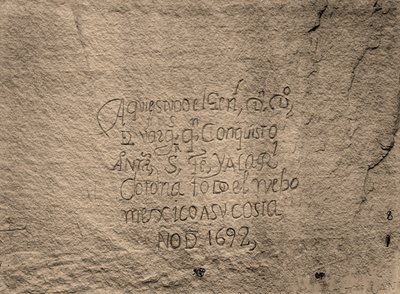 Aqui estuvo el Genl, Dn. Do,
De Vargas, qn, Conquisto
A Nra, S. Fe, Y A La Rl
Corona toDo el nvebo
mexico A SV costa,
AÑO D. 1692,